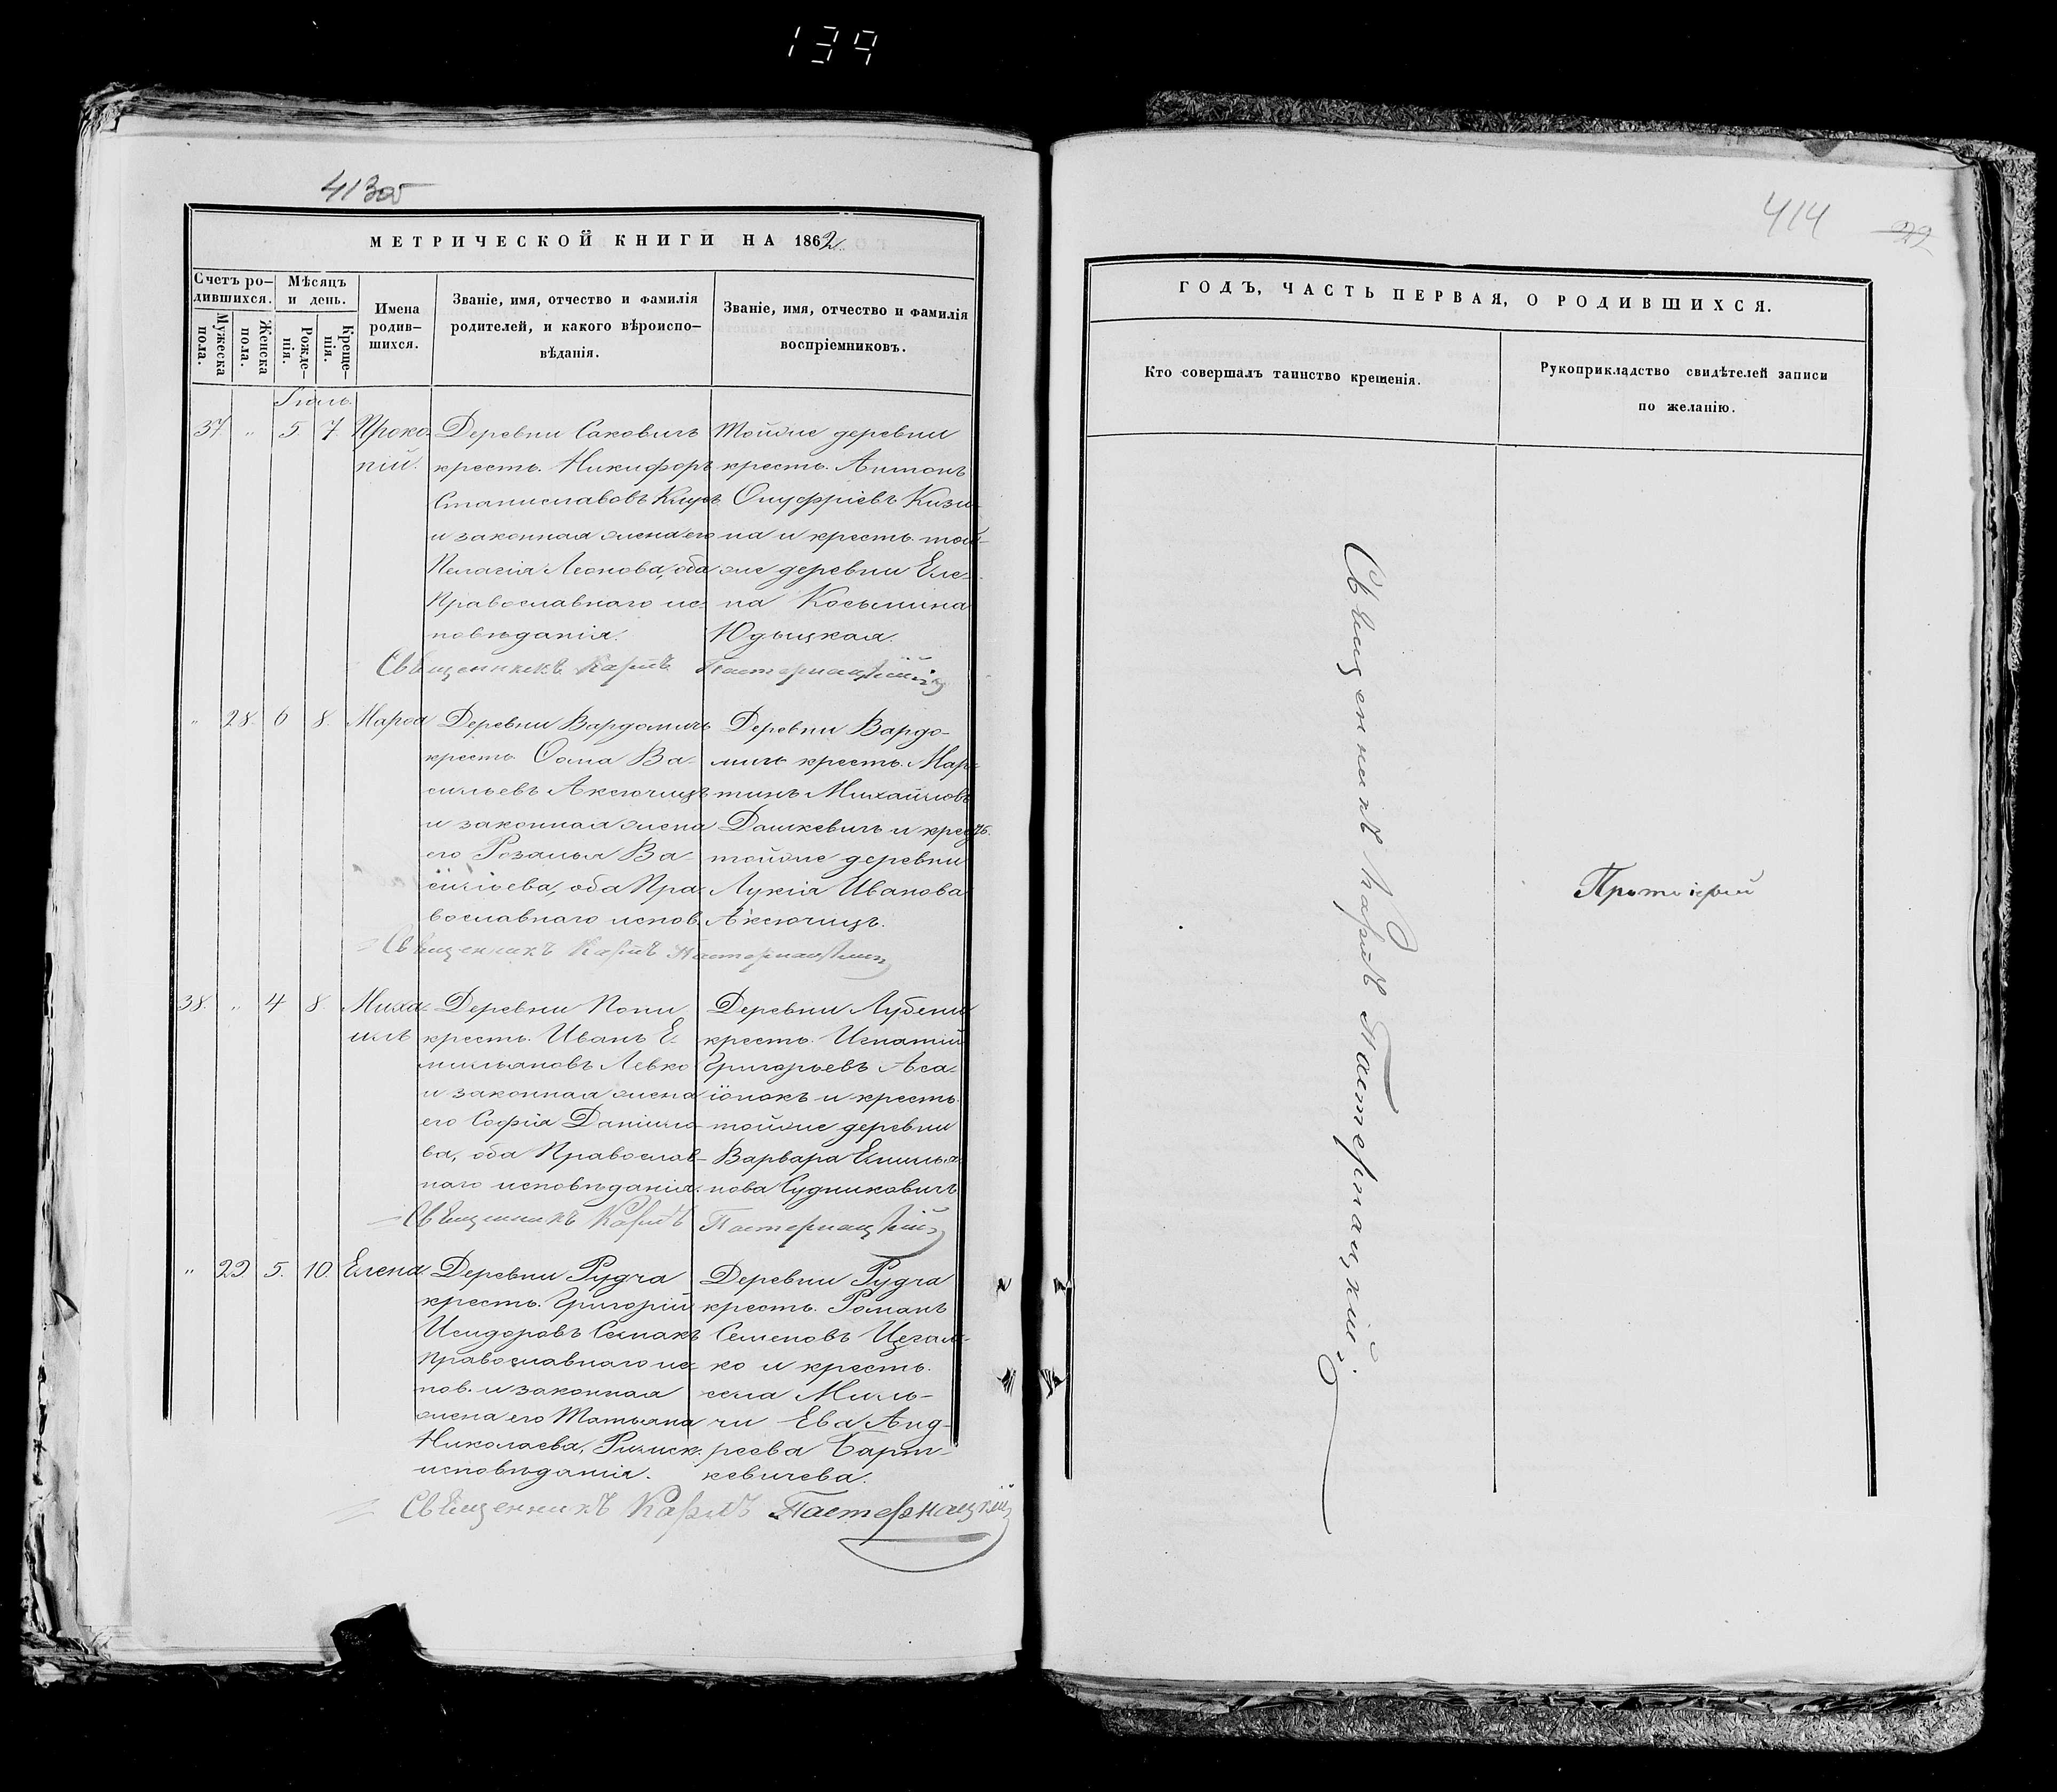 139
413об
МЕТРИЧЕСКОЙ КНИГИ НА 1862
Счетъ ро-
дившихся.
Мужеска
пола.
Женска
пола.
Мѣсяцъ
и день.
Рожде-
нія.
Креще-
нія.
Имена
родив-
шихся.
Званіе, имя, отчество и фамилія
родителей, и какого вѣроиспо-
вѣданія.
Званіе, имя, отчество и фамилія
воспріемниковъ.
Іюль.
37 " 5 7. Проко-
пій.
Деревни Саковичъ
кресть. Никифоръ
Станиславовъ
и законная жена его
Пелагія Леонова, оба
Православнаго ис-
повѣданія.
Тойже деревни
кресть. Антонъ
Онуфріевъ Кизи-
на и кресть. той-
же деревни Еле-
на Косьмина
Юдыцкая.
Священникъ Карпъ Пастернацкій
" 28. 6 8. Марѳа
Деревни Вардомичъ
кресть. Ѳома Ва-
сильевъ Аксючицъ
и законная жена
его Розалья Ва-
силіева, оба Пра-
вославнаго испов.
Деревни Вардо-
мичъ кресть. Мар-
тинъ Михайловъ
Дашкевичъ и кресть.
тойже деревни
Лукія Иванова
Аксючицъ.
Священникъ Карпъ Пастернацкій
38. " 4 8. Миха-
илъ
Деревни Попи
кресть. Иванъ Е-
мильяновъ Левко
и законная жена
его Софія Данило-
ва, оба Православ-
наго исповѣданія.
Деревни Лубени
кресть. Игнатій
Григорьевъ Аса-
іонокъ и кресть.
тойже деревни
Варвара Емилья-
нова Судниковичъ
Священникъ Карпъ Пастернацкій
" 29. 5. 10. Елена
Деревни Рудга
кресть. Григорій
Исидоровъ Семакъ
Православнаго ис-
пов. и законная
жена его Татьяна
Николаева, Римск.
исповѣданія.
Деревни Рудга
кресть. Романъ
Семеновъ Цегал-
ко и кресть.
села Миль-
чи Ева Анд-
реева Барт-
кевичева.
Священникъ Карпъ Пастернацкій
414
29
ГОДЪ, ЧАСТЬ ПЕРВАЯ, О РОДИВШИХСЯ.
Кто совершалъ таинство крещенія.
Рукоприкладство свидѣтелей записи
по желанію.
Священникъ Карпъ Пастернацкій.
Протоіерей